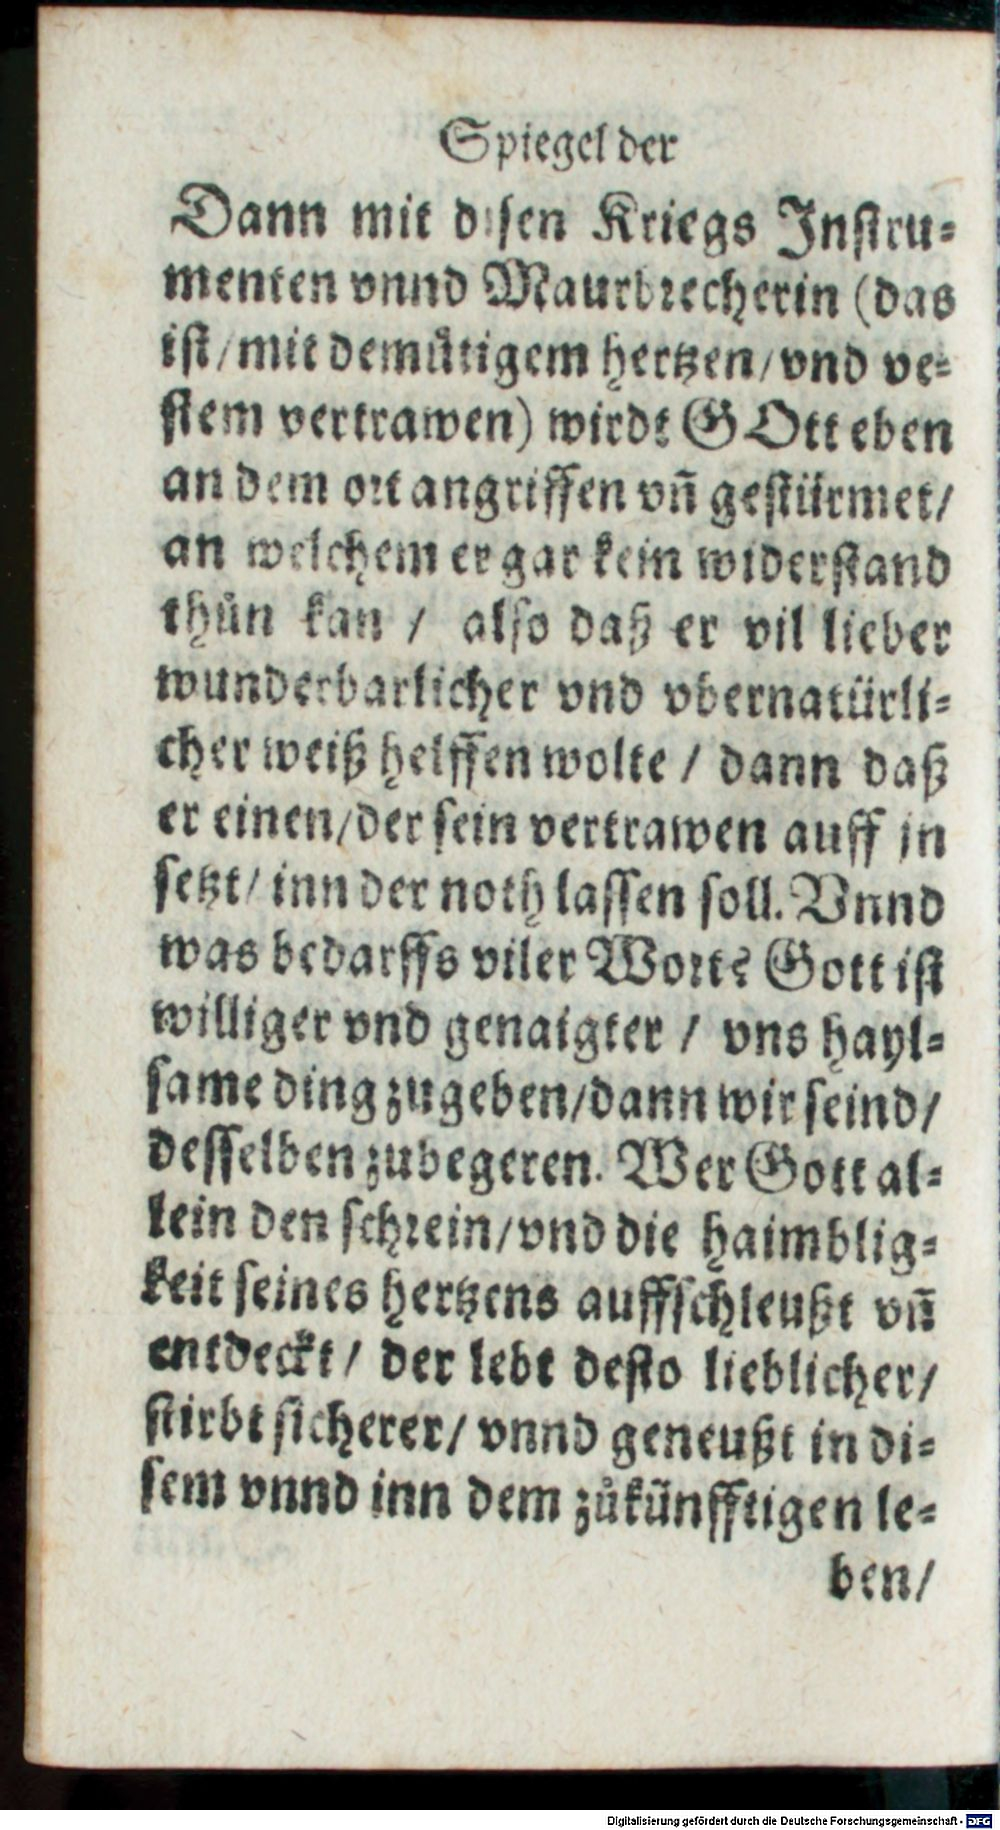 Spiegel der
Dann mit disen Kriegs Instru-
menten vnnd Maurbrecherin (das
ist/mit demütigem hertzen/vnd ve-
stem vertrawen) wirdt GOtt eben
an dem ort angriffen vñ gestürmet/
an welchem er gar kein widerstand
thůn kan / also daß er vil lieber
wunderbarlicher vnd vbernatürli-
cher weiß helffen wolte / dann daß
er einen/der sein vertrawen auff jn
setzt/ inn der noth lassen soll. Vnnd
was bedarffs viler Wort? Gott ist
williger vnd genaigter / vns hayl-
same ding zugeben/dann wir seind/
desselben zubegeren. Wer Gott al-
lein den schrein/vnd die haimblig-
keit seines hertzens auffschleußt vñ
entdeckt/ der lebt desto lieblicher/
stirbt sicherer/ vnnd geneußt in di-
sem vnnd inn dem zůkünfftigen le-
ben/
Digitalisierung gefördert durch die Deutsche Forschungsgemeinschaft - DFG